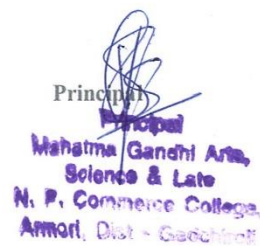 Principal
Principal
Mahatma Gandhi Arts,
Science & Late
N. P. Commerce College,
Armori, Dist - Gadchiroli